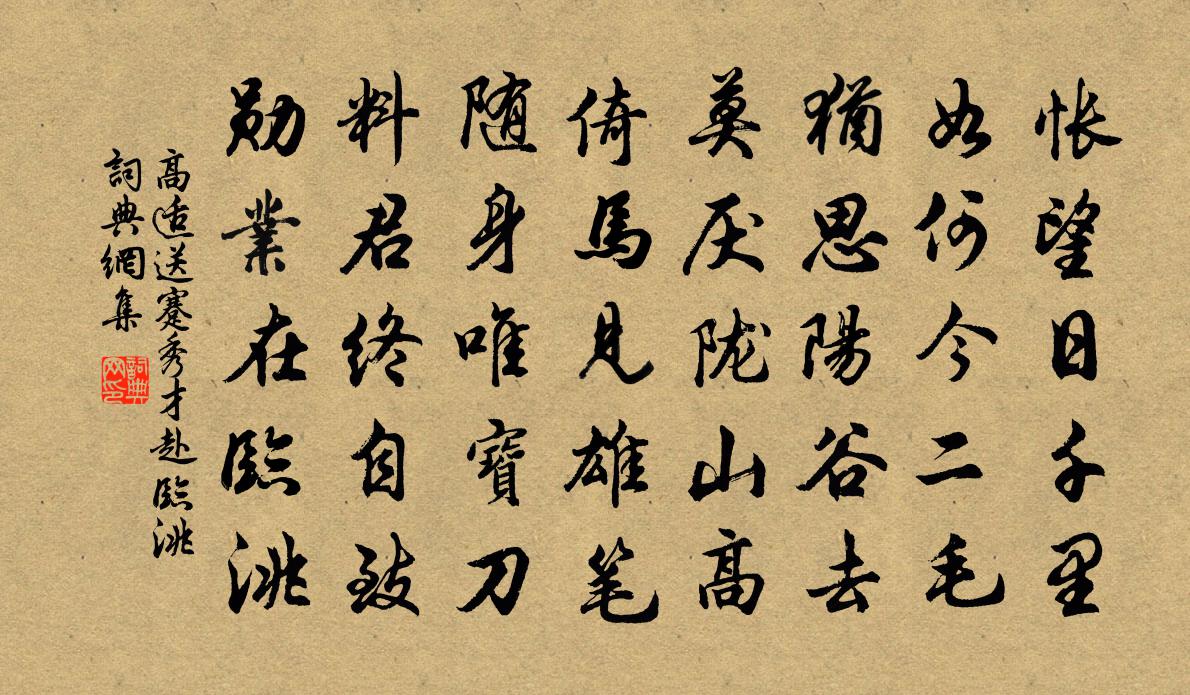 怅望日千里
如何今二毛
猶思陽谷去
莫厌陇山高
倚馬見雄笔
随身唯寶刀
料君终自致
勋業在臨洮
高适送蹇秀才赴臨洮
詞典網集
詞典网印